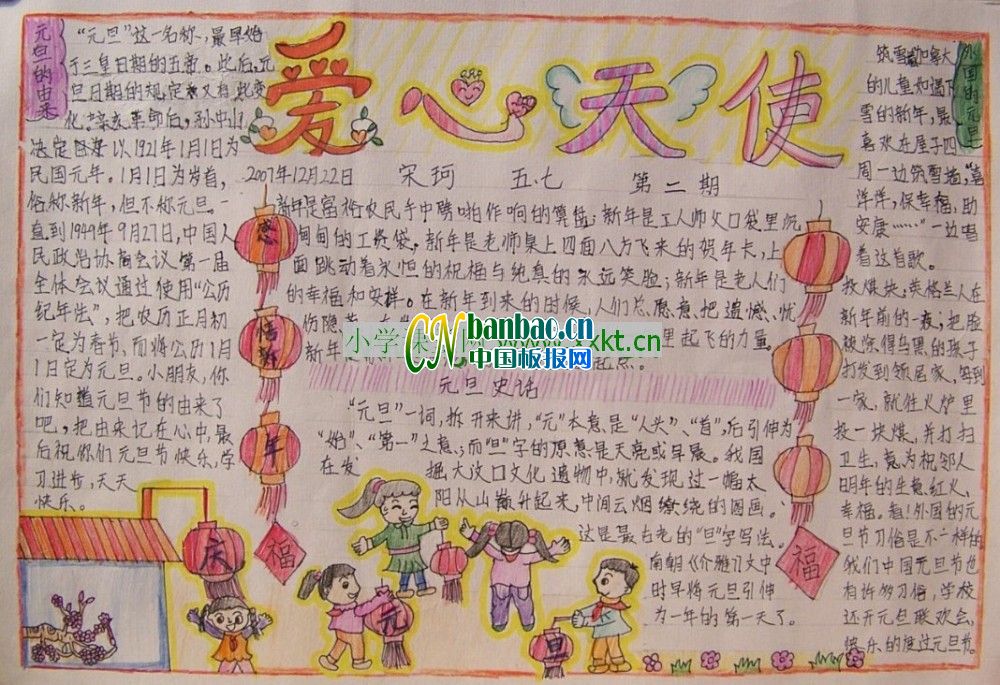 爱心天使
2007年12月22日 宋珂 五.七 第二期
元旦的由来
“元旦”这一名称，最早始
于三皇日期的五帝。此后，元
旦日期的规定
化。辛亥革命后，孙中山
决定 以1921年1月1日为
民国元年。1月1日为岁首，
俗称新年，但不称元旦。一
直到1949年9月27日，中国人
民政治协商会议第一届
全体会议通过使用“公历
纪年法”，把农历正月初
一定为春节，而将公历1月
1日定为元旦。小朋友，你
们知道元旦节的由来了
吧，把由来记在心中，最
后祝你们元旦节快乐，学
习进步，天天
快乐。
感
悟
新
年
新年是富裕农民手中噼啪作响的算盘；新年是工人师父口袋里沉
甸甸的工资袋。新年是老师桌上四面八方飞来的贺年卡，上
面跳动着永恒的祝福与纯真的永远笑脸；新年是老人们
的幸福和安祥。在新年到来的时候，人们总愿意把遗憾、忧
伤隐
新年
里起飞的力量。
起点。
小学
xkt.cn
CN banbao.cn
CN 中国板报网
元旦史话
“元旦”一词，拆开来讲，“元”本意是“人头”、“首”，后引伸为
“始”、“第一”之意；而“旦”字的原意是天亮或早晨。我国
在发掘大汶口文化遗物中，就发现过一幅太
阳从山巅升起来，中间云烟缭绕的图画。
这是最古老的“旦”字写法。
南朝《介雅》文中
时早将元旦引伸
为一年的第一天了。
福
福
庆
元
旦
外国的元旦
筑雪 加拿大
的儿童如遇下
雪的新年，最
喜欢在屋子四
周一边筑雪墙，“喜
洋洋，保幸福，助
安康……”一边唱
着这首歌。
投煤块：英格兰人在
新年前的一夜；把脸
被涂得乌黑的孩子
打发到邻居家，每到
一家，就往火炉里
投一块煤，并打扫
卫生，意为祝邻人
明年的生意红火，
幸福。看！外国的元
旦节习俗是不一样的
我们中国元旦节也
有许多习俗，学校
还开元旦联欢会，
快乐的度过元旦节。